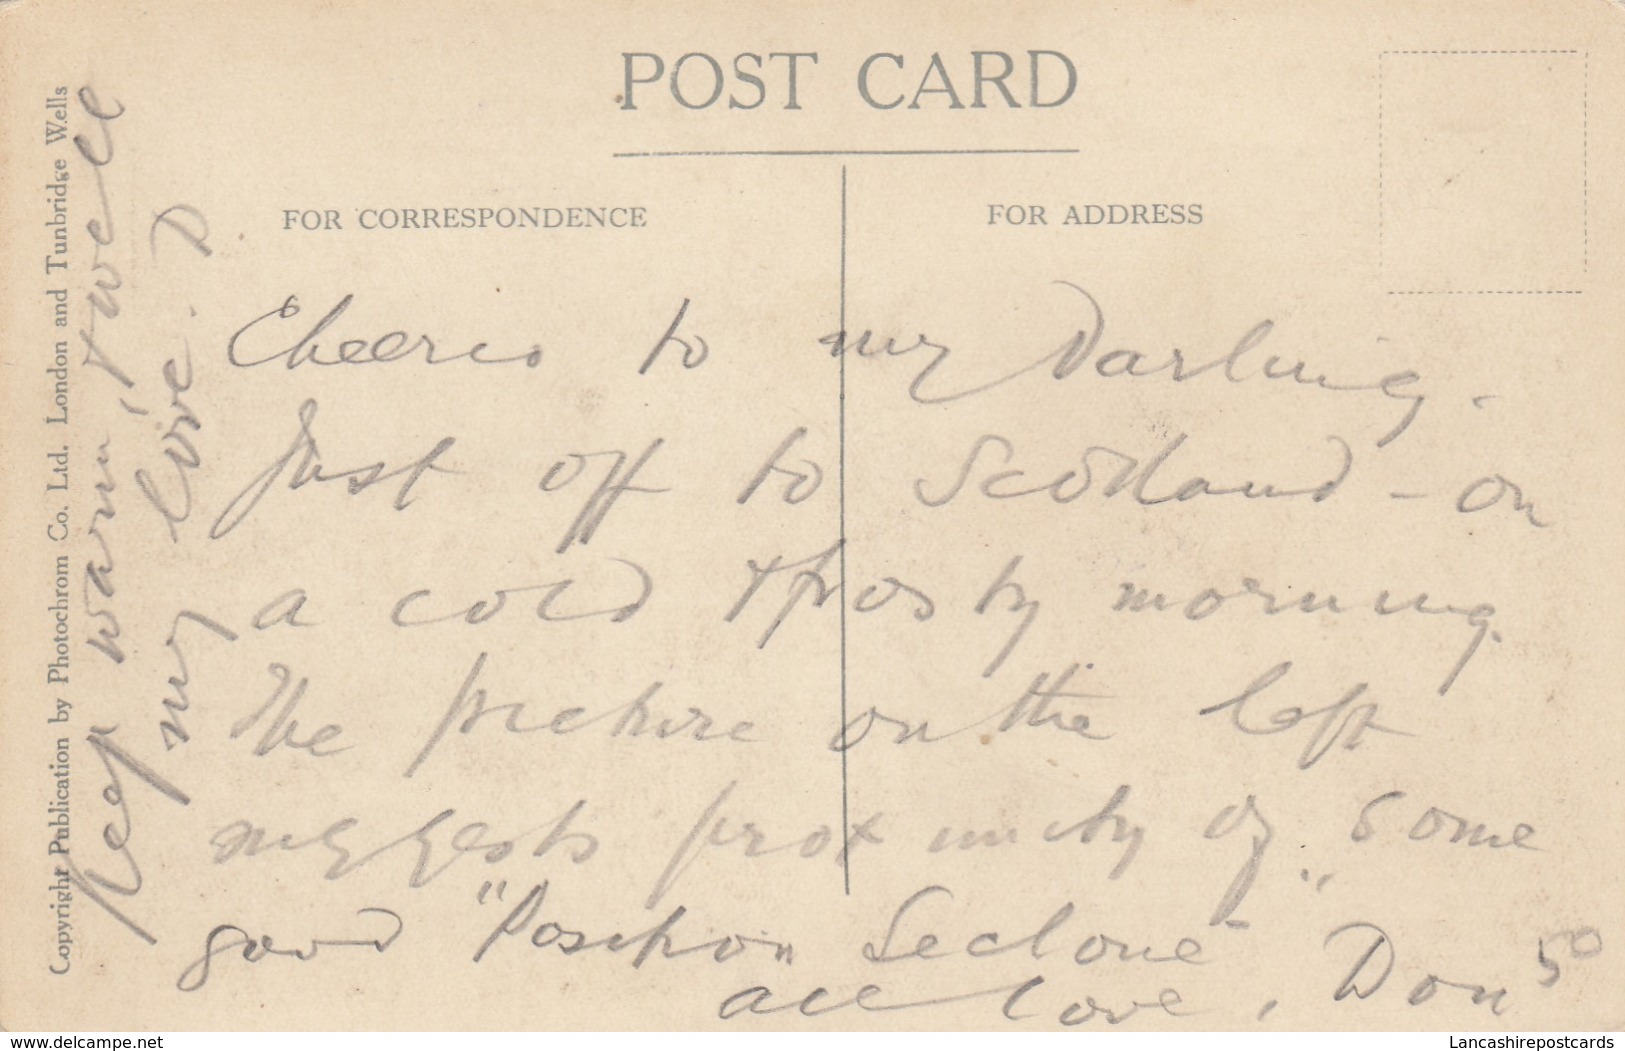 POST CARD
FOR CORRESPONDENCE
FOR ADDRESS
Cheerio to my Darling -
Just off to Scotland - on
a cold & frosty morning.
The picture on the left
suggests proximity of some
good "Position Seclone"
all love, Don 50
Keep warm, & well
my love. D
Copyright Publication by Photochrom Co. Ltd. London and Tunbridge Wells
www.delcampe.net
Lancashirepostcards